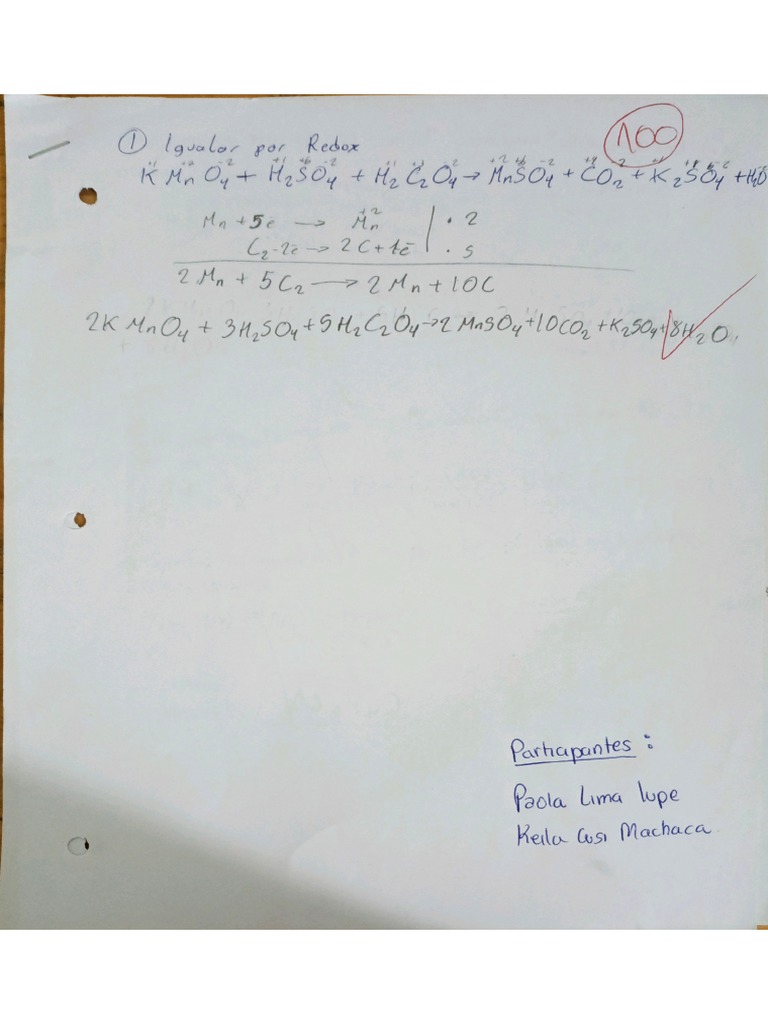 ① Igualar por Redox
100
K Mn O₄ + H₂SO₄ + H₂C₂O₄ → MnSO₄ + CO₂ + K₂SO₄ + H₂O
Mn + 5e → Mn⁺² | · 2
C₂ - 2e → 2C + 1e | · 5
2 Mn + 5C₂ → 2 Mn + 10C
2K MnO₄ + 3H₂SO₄ + 5H₂C₂O₄ → 2 MnSO₄ + 10CO₂ + K₂SO₄ + 8H₂O.
Participantes :
Paola Lima lupe
Keila Cusi Machaca